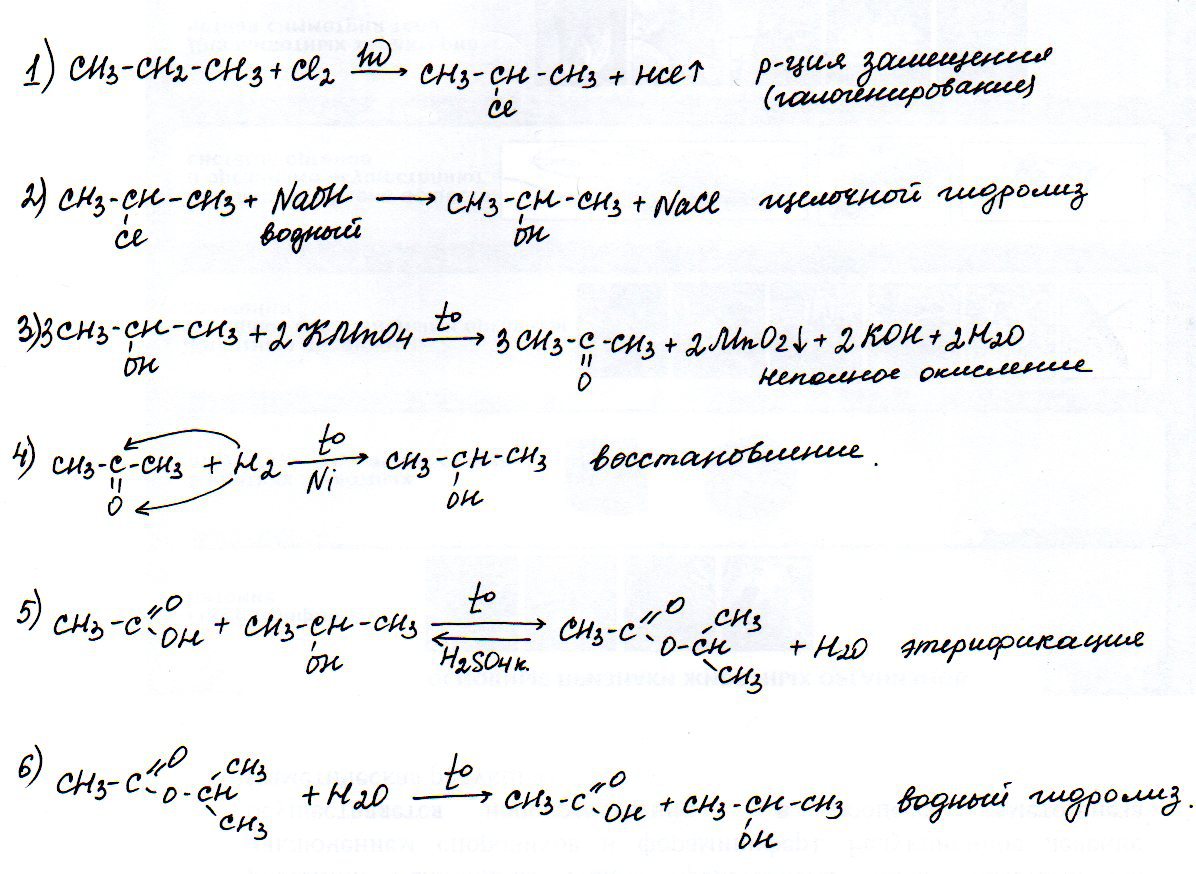 1) CH3-CH2-CH3 + Cl2 hν → CH3-CH-CH3 + HCl↑ р-ция замещения
Cl (галогенирование)
2) CH3-CH-CH3 + NaOH → CH3-CH-CH3 + NaCl щелочной гидролиз
Cl водный OH
3) 3CH3-CH-CH3 + 2KMnO4 t° → 3CH3-C-CH3 + 2MnO2↓ + 2KOH + 2H2O
OH O неполное окисление
4) CH3-C-CH3 + H2 t° Ni → CH3-CH-CH3 восстановление.
O OH
5) CH3-C=O OH + CH3-CH-CH3 t° ⇄ H2SO4к. CH3-C=O O-CH CH3 CH3 + H2O этерификация
OH
6) CH3-C=O O-CH CH3 CH3 + H2O t° → CH3-C=O OH + CH3-CH-CH3 водный гидролиз.
OH